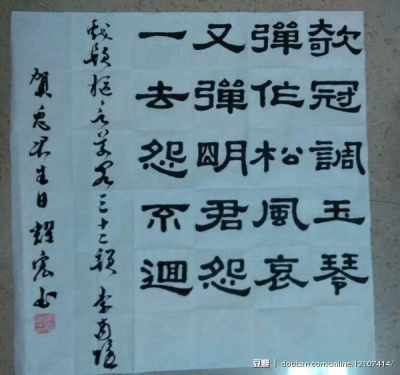 欹冠調玉琴
彈作松風哀
又彈明君怨
一去怨不迴
戲題樞言草閣三十二韻 李商隱
賀兔生日 書
豆瓣 douban.com/online/12107414/